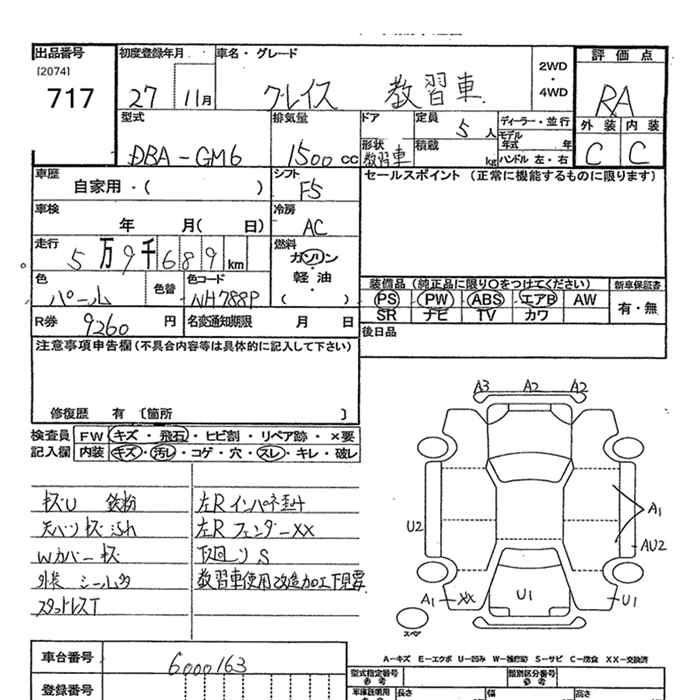 出品番号
[2074]
717
初度登録年月
27 11月
車名・グレード
グレイス 教習車
2WD
・
4WD
評価点
RA
外装 内装
C C
型式
DBA-GM6
排気量
1500 cc
ドア
形状
教習車
定員
5 人
積載
kg
ディーラー・並行
モデル年式 年
ハンドル 左・右
車歴
自家用・( )
シフト
F5
セールスポイント (正常に機能するものに限ります)
車検
年 月( 日)
冷房
AC
走行
5万9千689 km
燃料
ガソリン
・
軽油
( )
色
パール
色替
色コード
NH788P
R券
9260 円
名変通知期限 月 日
装備品(純正品に限り○をつけてください)
PS PW ABS エアB AW
SR ナビ TV カワ
新車保証書
有・無
後日品
注意事項申告欄(不具合内容等は具体的に記入して下さい)
修復歴 有〔箇所 〕
検査員記入欄
FW キズ・飛石・ヒビ割・リペア跡・×要
内装 キズ・汚レ・コゲ・穴・スレ・キレ・破レ
キズU 鉄粉
天バリ キズ 汚れ
Wカバーキズ
外装 シール多
スタットレスT
左Rインパネ
左RフェンダーXX
下廻りS
教習車使用改造加工下見要
A3 A2 A2
U2
A1
AU2
A1 XX
U1
U1
スペア
A-キズ E-エクボ U-凹み W-補修跡 S-サビ C-腐食 XX-交換済
車台番号
6000163
登録番号
型式指定番号
参考
類別区分番号
参考
車庫証明用
参考
長さ
幅
高さ